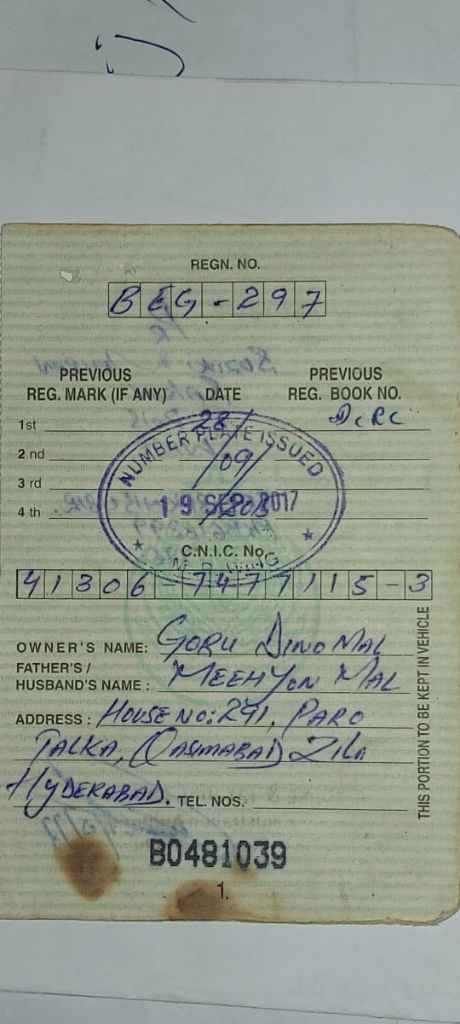 REGN. NO.
BEG-297
PREVIOUS
REG. MARK (IF ANY) DATE
PREVIOUS
REG. BOOK NO.
1st 28/
2 nd /09/
3 rd
4 th
NUMBER PLATE ISSUED
19 SEP 2017
C.N.I.C. No.
41306-7477115-3
OWNER'S NAME: GORU DINO MAL
FATHER'S /
HUSBAND'S NAME : MEEHYON MAL
ADDRESS : HOUSE NO: 291, PARO
TALKA, QASIMABAD ZILA
HYDERABAD. TEL. NOS.
B0481039
1.
THIS PORTION TO BE KEPT IN VEHICLE